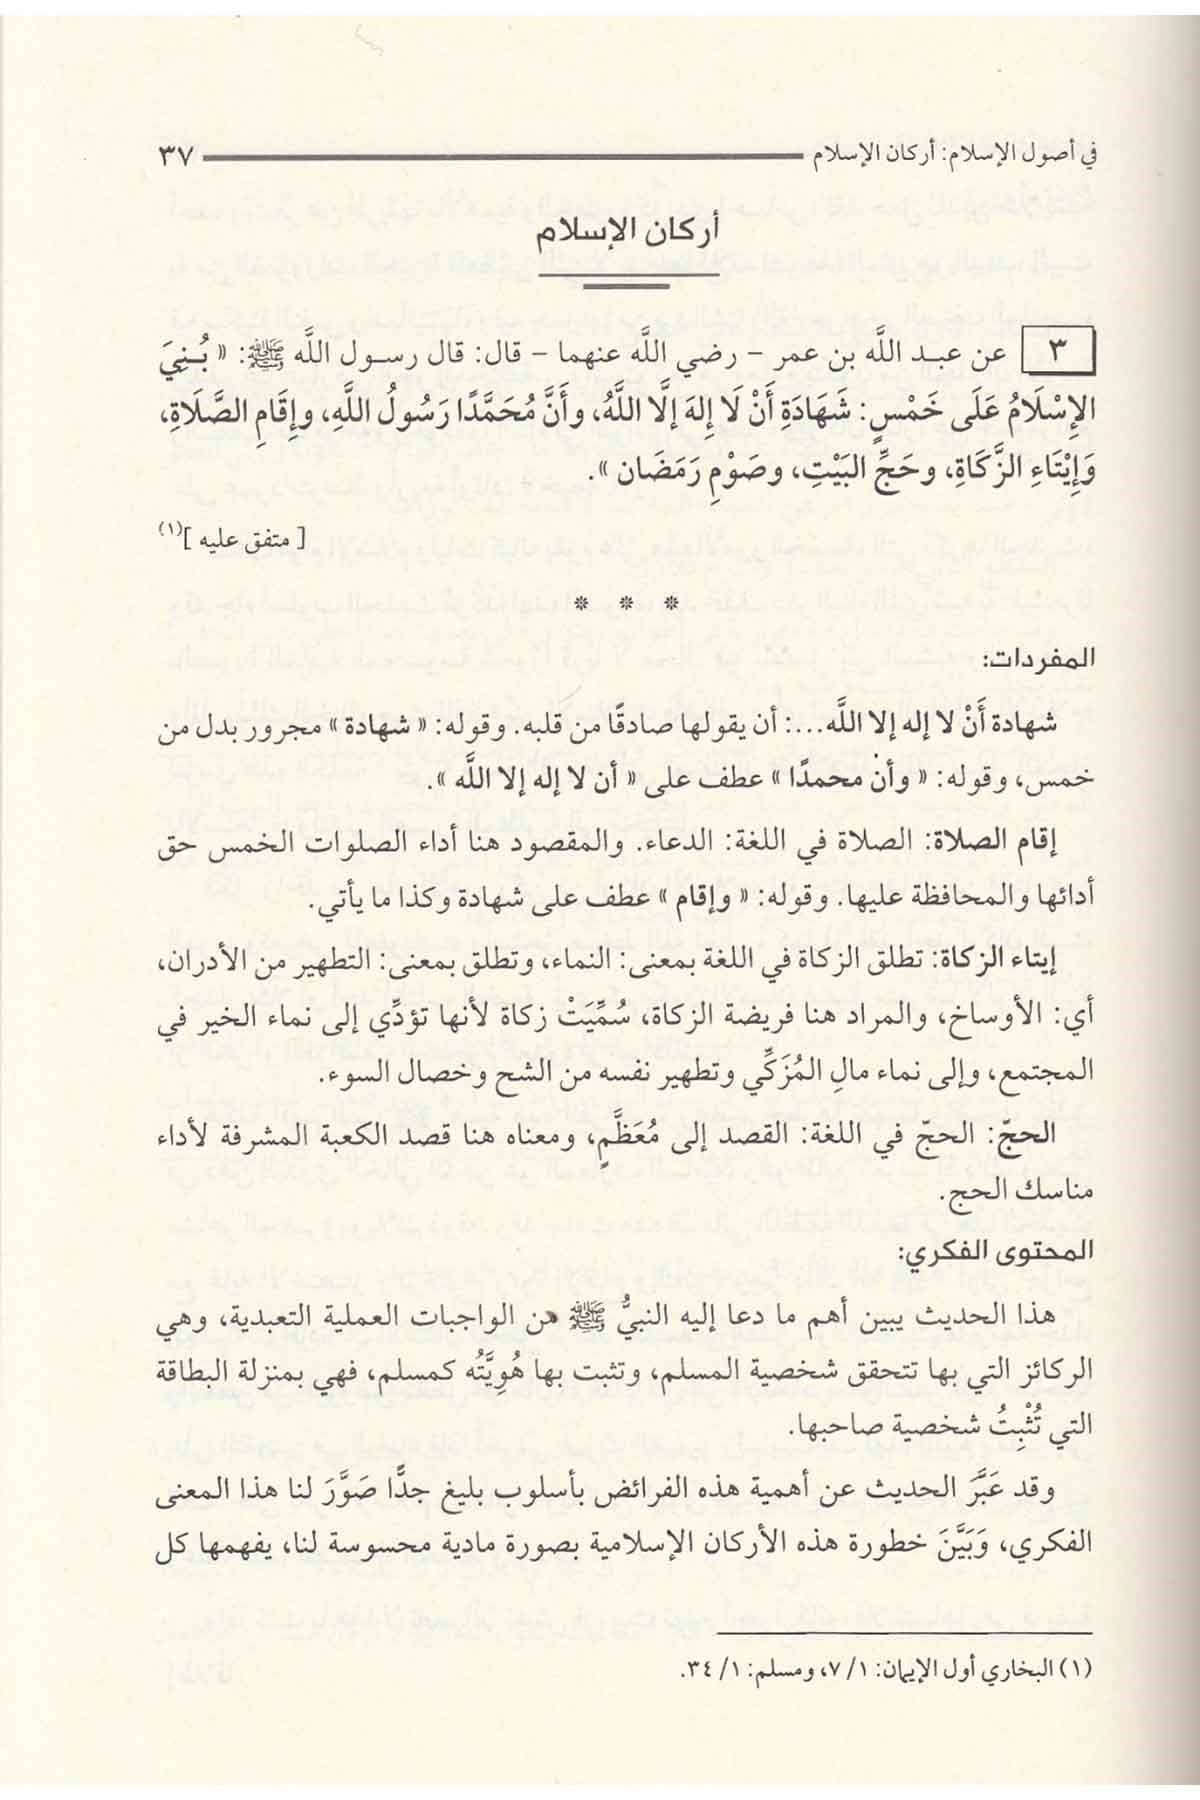 في أصول الإسلام: أركان الإسلام ٣٧
أركان الإسلام
٣ عن عبد اللَّه بن عمر - رضي اللَّه عنهما - قال: قال رسول اللَّه ﷺ: « بُنِيَ
الإِسْلَامُ عَلَى خَمْسٍ: شَهَادَةِ أَنْ لَا إِلهَ إلَّا اللَّهُ، وأَنَّ مُحَمَّدًا رَسُولُ اللَّهِ، وإِقَامِ الصَّلَاةِ،
وَإِيْتَاءِ الزَّكَاةِ، وحَجِّ البَيْتِ، وصَوْمِ رَمَضَان ».
[ متفق عليه ](١)
* * *
المفردات:
شهادة أَنْ لا إله إلا اللَّه...: أن يقولها صادقًا من قلبه. وقوله: « شهادة » مجرور بدل من
خمس، وقوله: « وأن محمدًا » عطف على « أن لا إله إلا اللَّه ».
إقام الصلاة: الصلاة في اللغة: الدعاء. والمقصود هنا أداء الصلوات الخمس حق
أدائها والمحافظة عليها. وقوله: « وإقام » عطف على شهادة وكذا ما يأتي.
إيتاء الزكاة: تطلق الزكاة في اللغة بمعنى: النماء، وتطلق بمعنى: التطهير من الأدران،
أي: الأوساخ، والمراد هنا فريضة الزكاة، سُمِّيَتْ زكاة لأنها تؤدِّي إلى نماء الخير في
المجتمع، وإلى نماء مالِ المُزَكِّي وتطهير نفسه من الشح وخصال السوء.
الحجّ: الحجّ في اللغة: القصد إلى مُعَظَّمٍ، ومعناه هنا قصد الكعبة المشرفة لأداء
مناسك الحج.
المحتوى الفكري:
هذا الحديث يبين أهم ما دعا إليه النبيُّ ﷺ من الواجبات العملية التعبدية، وهي
الركائز التي بها تتحقق شخصية المسلم، وتثبت بها هُوِيَّتُه كمسلم، فهي بمنزلة البطاقة
التي تُثْبِتُ شخصية صاحبها.
وقد عَبَّرَ الحديث عن أهمية هذه الفرائض بأسلوب بليغ جدًّا صَوَّرَ لنا هذا المعنى
الفكري، وَبَيَّنَ خطورة هذه الأركان الإسلامية بصورة مادية محسوسة لنا، يفهمها كل
(١) البخاري أول الإيمان: ١/ ٧، ومسلم: ١/ ٣٤.